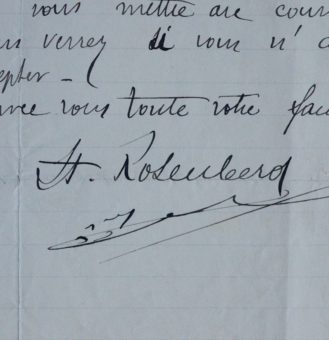 vous mettre au cour
verrez si vous n' a
epter -
avec vous toute votre fam
St. Rosenberg